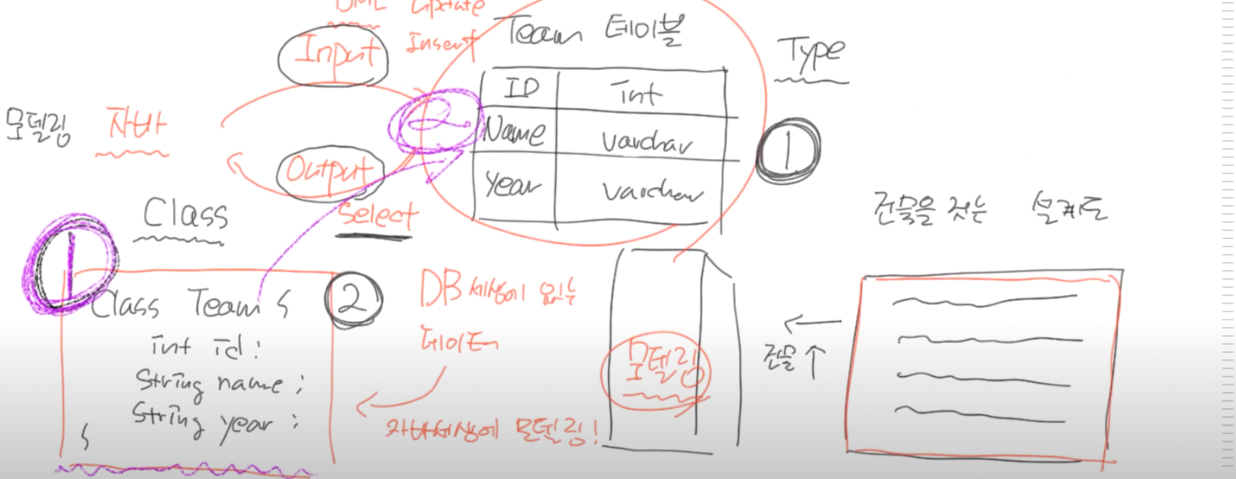 DML update
Input Insert
Team 테이블
Type
ID int
Name varchar
year varchar
①
2
모델링 자바
Output
Select
Class
①
②
Class Team {
int id;
String name;
String year;
}
DB 세상에 있는
데이터
자바세상에 모델링!
모델링
건물을 짓는 설계도
건물↑